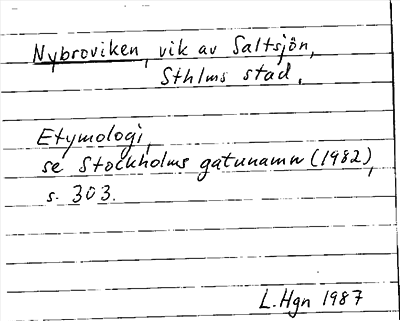 Nybroviken, vik av Saltsjön,
Sthlms stad.
Etymologi,
se Stockholms gatunamn (1982),
s. 303.
L.Hgn 1987